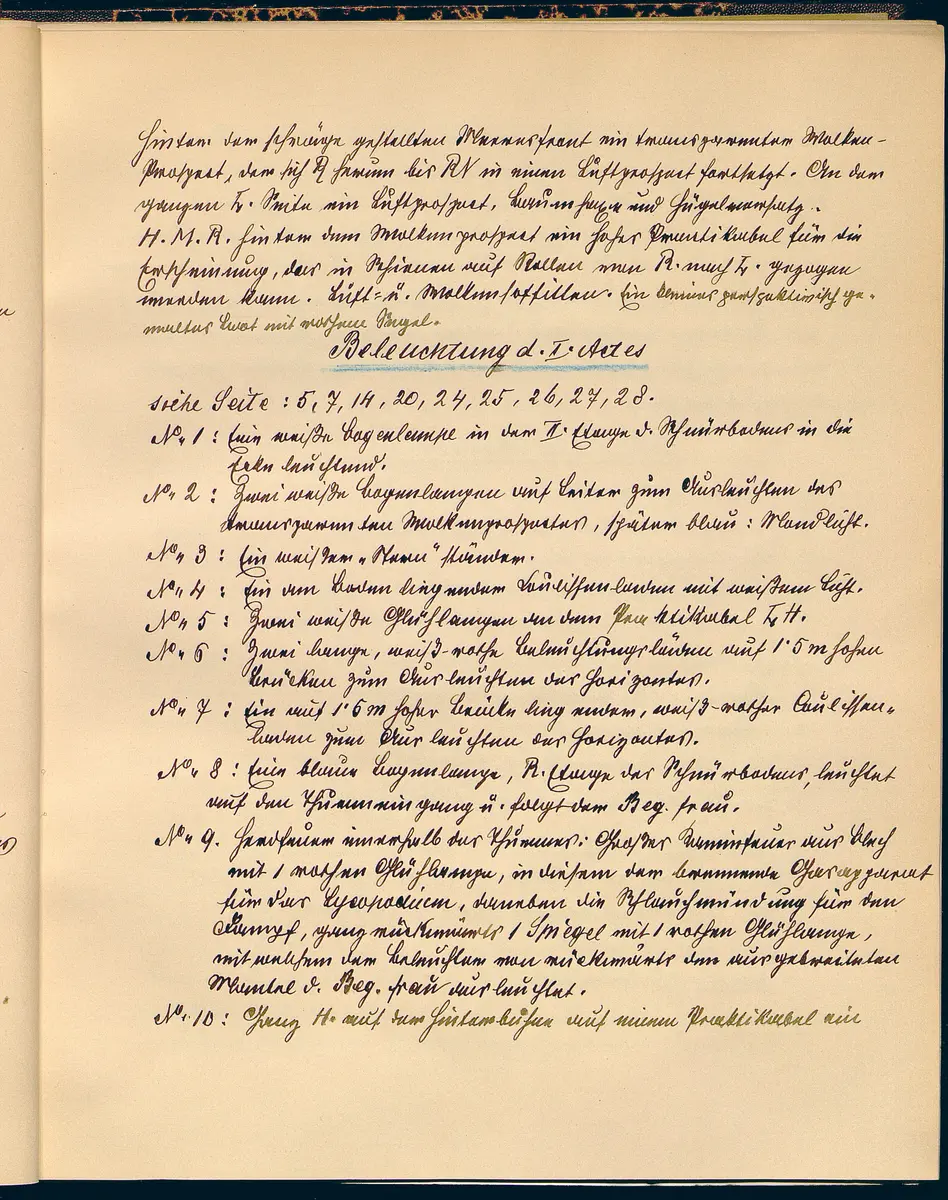 Hinter der schräge gestellten Meeresfront ein transparenter Wolken-
Prospect, der sich R herum bis RV in einen Luftprospect fortsetzt. An der
ganzen L. Seite ein Luftprospect, Baumsaxe und Hügelversatz.
H. M. R. hinter dem Wolkenprospect ein hohes Practikabel für die
Erscheinung, das in Schienen auf Rollen von R. nach L. gezogen
werden kann. Luft= u. Wolkensoffitten. Ein kleines perspektivisch ge-
maltes Boot mit rothem Segel.
Beleuchtung d. I. Actes
siehe Seite : 5, 7, 14, 20, 24, 25, 26, 27, 28.
No 1 : Eine weiße Bogenlampe in der II. Etage d. Schnürbodens in die
Ecke leuchtend.
No 2 : Zwei weiße Bogenlampen auf Leiter zum Ausleuchten des
transparenten Wolkenprospectes, später blau : Mondlicht.
No 3 : Ein weißer „Stern" ständer.
No 4 : Ein am Boden liegender Coulissenladen mit weißem Licht.
No 5 : Zwei weiße Glühlampen an dem Praktikabel L H.
No 6 : Zwei lange, weiß-rothe Beleuchtungsläden auf 1·5 m hohen
Brücken zum Ausleuchten des Horizontes.
No 7 : Ein auf 1·5 m hoher Brücke liegender, weiß-rother Coulissen-
laden zum Ausleuchten des Horizontes.
No 8 : Eine blaue Bogenlampe, R. Etage des Schnürbodens, leuchtet
auf den Thurmeingang u. folgt der Beg. frau.
No 9. Herdfeuer innerhalb des Thurmes: Großes Kaminfeuer aus Blech
mit 1 rothen Glühlampe, in diesem der brennende Gasapparat
für das Lycopodium, daneben die Schlauchmündung für den
Dampf, ganz rückwärts 1 Spiegel mit 1 rothen Glühlampe,
mit welchem der Beleuchter von rückwärts den ausgebreiteten
Mantel d. Beg. frau ausleuchtet.
No 10 : Ganz H. auf der Hinterbühne auf einem Praktikabel ein